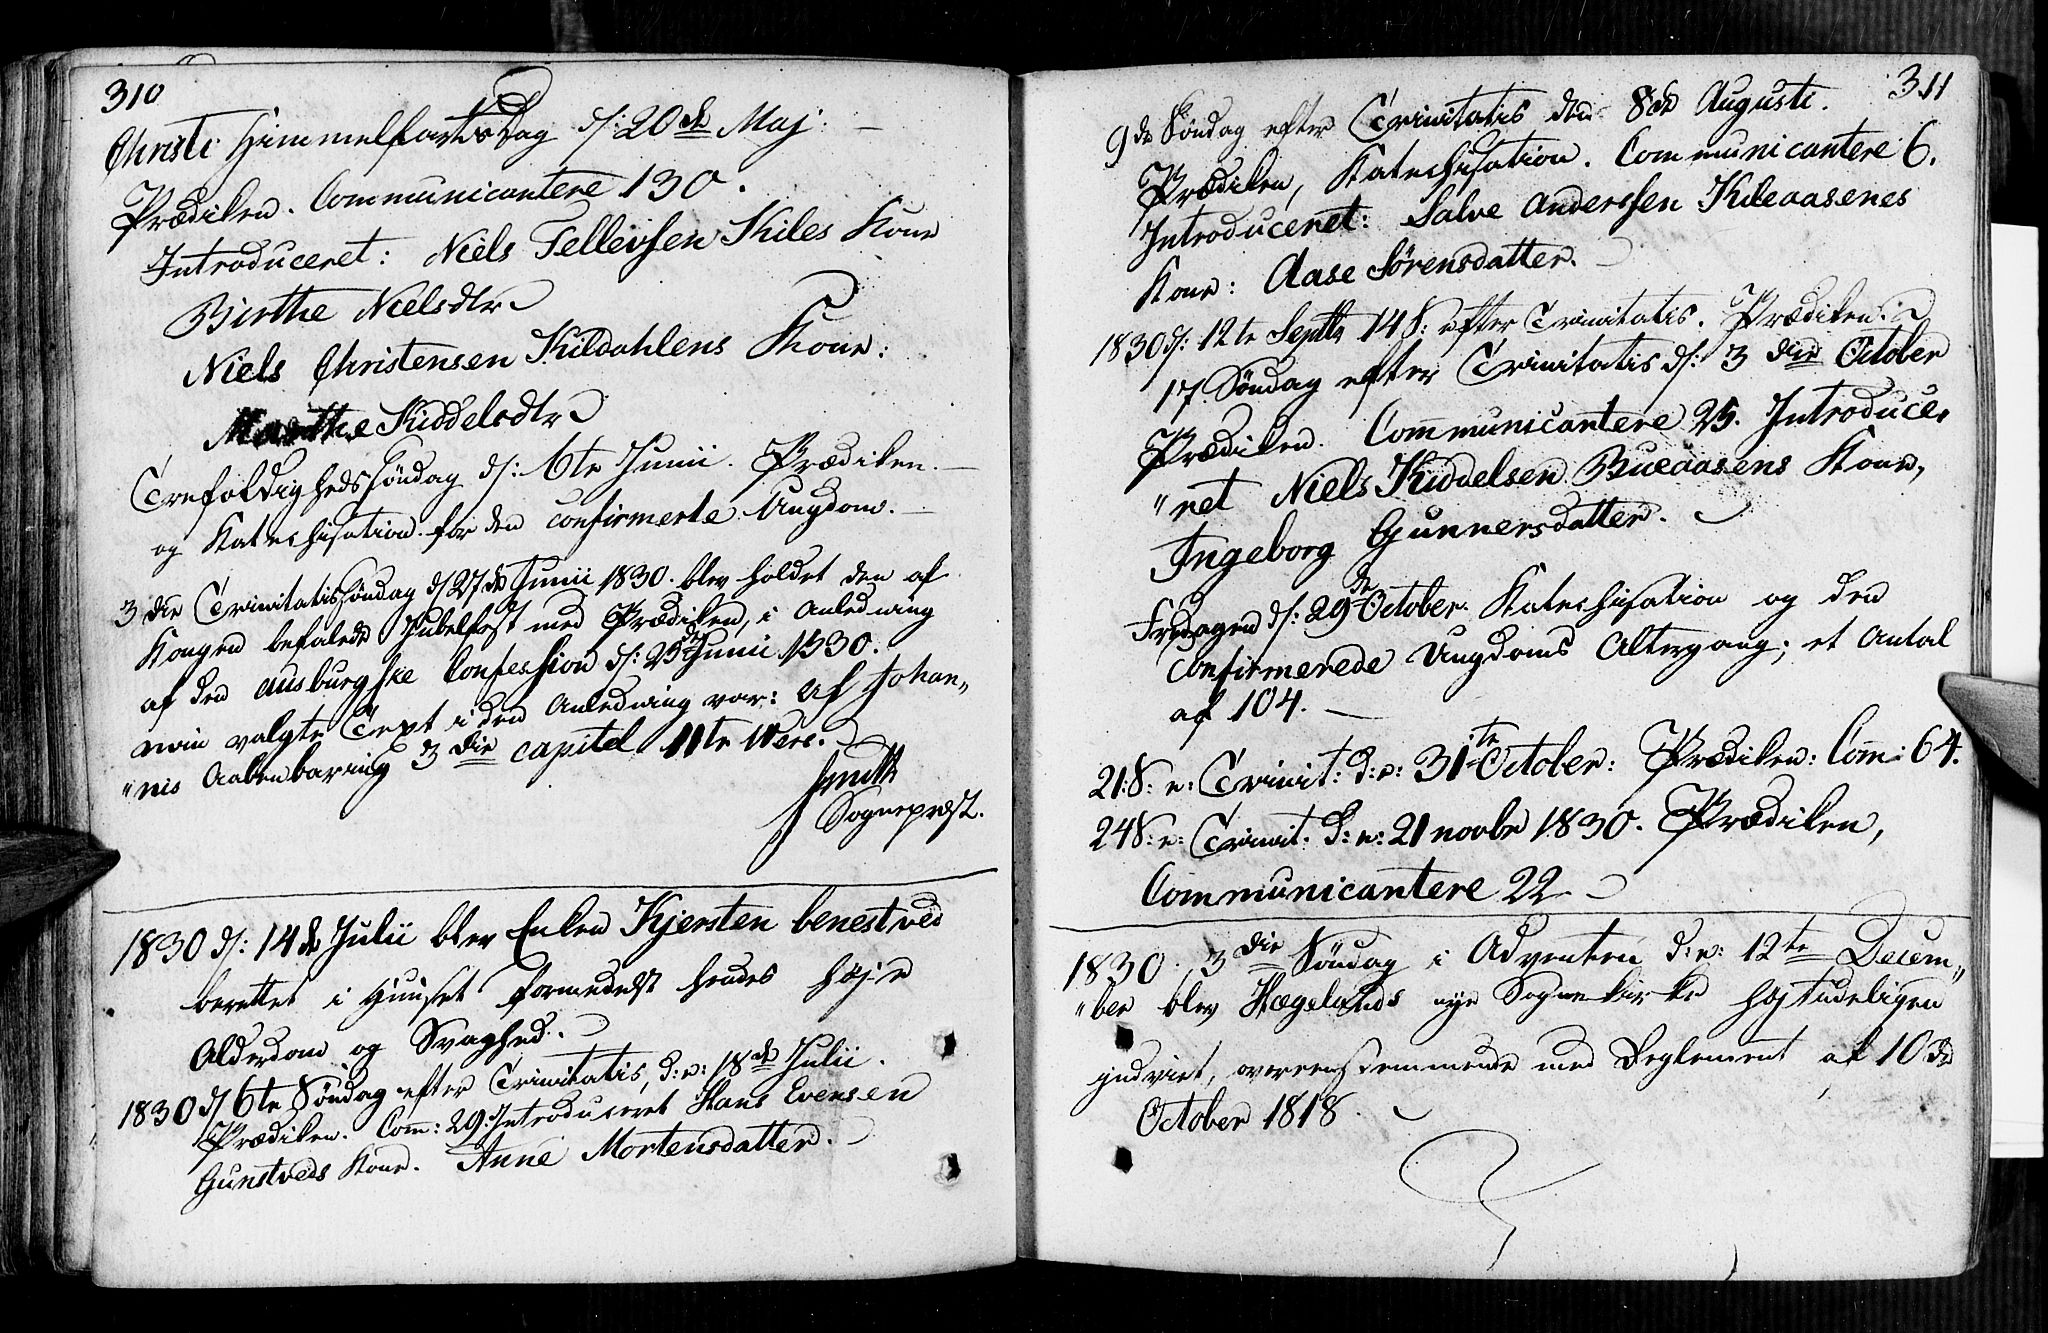 310
Christi Himmelfarts Dag d: 20de Maj.
Prædiken. Communicantere 130.
Introduceret: Niels Tellevsen Kiles Kone
Birthe Nielsdtr
Niels Christensen Kildahlens Kone:
Marthe Kiddelsdtr
Trefoldighedssöndag d: 6te Junii. Prædiken.
og Katechisation for den confirmerte Ungdom.
3die Trinitatissöndag d 27de Junii 1830. blev holdet den af
Kongen befalede Jubelfest med Prædiken, i Anledning
af den Ausburgske Confession d: 25de Junii 1530.
min valgte Text i den Anledning var: af Johan„
„nis Aabenbaring 3die Capitel 11te Vers.
Smith
Sognepræst.
1830 d: 14de Julii blev Enken Kjersten benestved
berettet i Huuset formedelst hendes høje
Alderdom og Svaghed.
1830 d 6te Söndag efter Trinitatis, d:e: 18de Julii.
Prædiken. Com: 29. Introduceret Hans Evensen
Gunstveds Kone. Anne Mortensdatter.
311
9de Söndag efter Trinitatis den 8de Augusti.
Prædiken, Katechisation. Communicantere 6.
Introduceret: Salve Anderssen Kileaasenes
Kone: Aase Sørensdatter.
1830 d: 12te Septbr 14 S: efter Trinitatis. Prædiken.
17 Söndag efter Trinitatis d: 3die October
Prædiken. Communicantere 25. Introduce„
„ret Niels Kiddelsen Bueaasens Kone,
Ingeborg Gunnersdatter.
Fredagen d: 29de October. Katechisation og den
confirmerede Ungdoms Altergang; et Antal
af 104.
21: S: e: Trinit: d:e: 31te October: Prædiken: Com: 64.
24 S: e: Trinit: d:e: 21 novbr 1830. Prædiken,
Communicantere 22
1830. 3die Söndag i Adventen d:e: 12te Decem„
„ber blev Hægelands nye Sognekirke højtideligen
indviet, overeenstemmende med Reglement af 10de
October 1818.